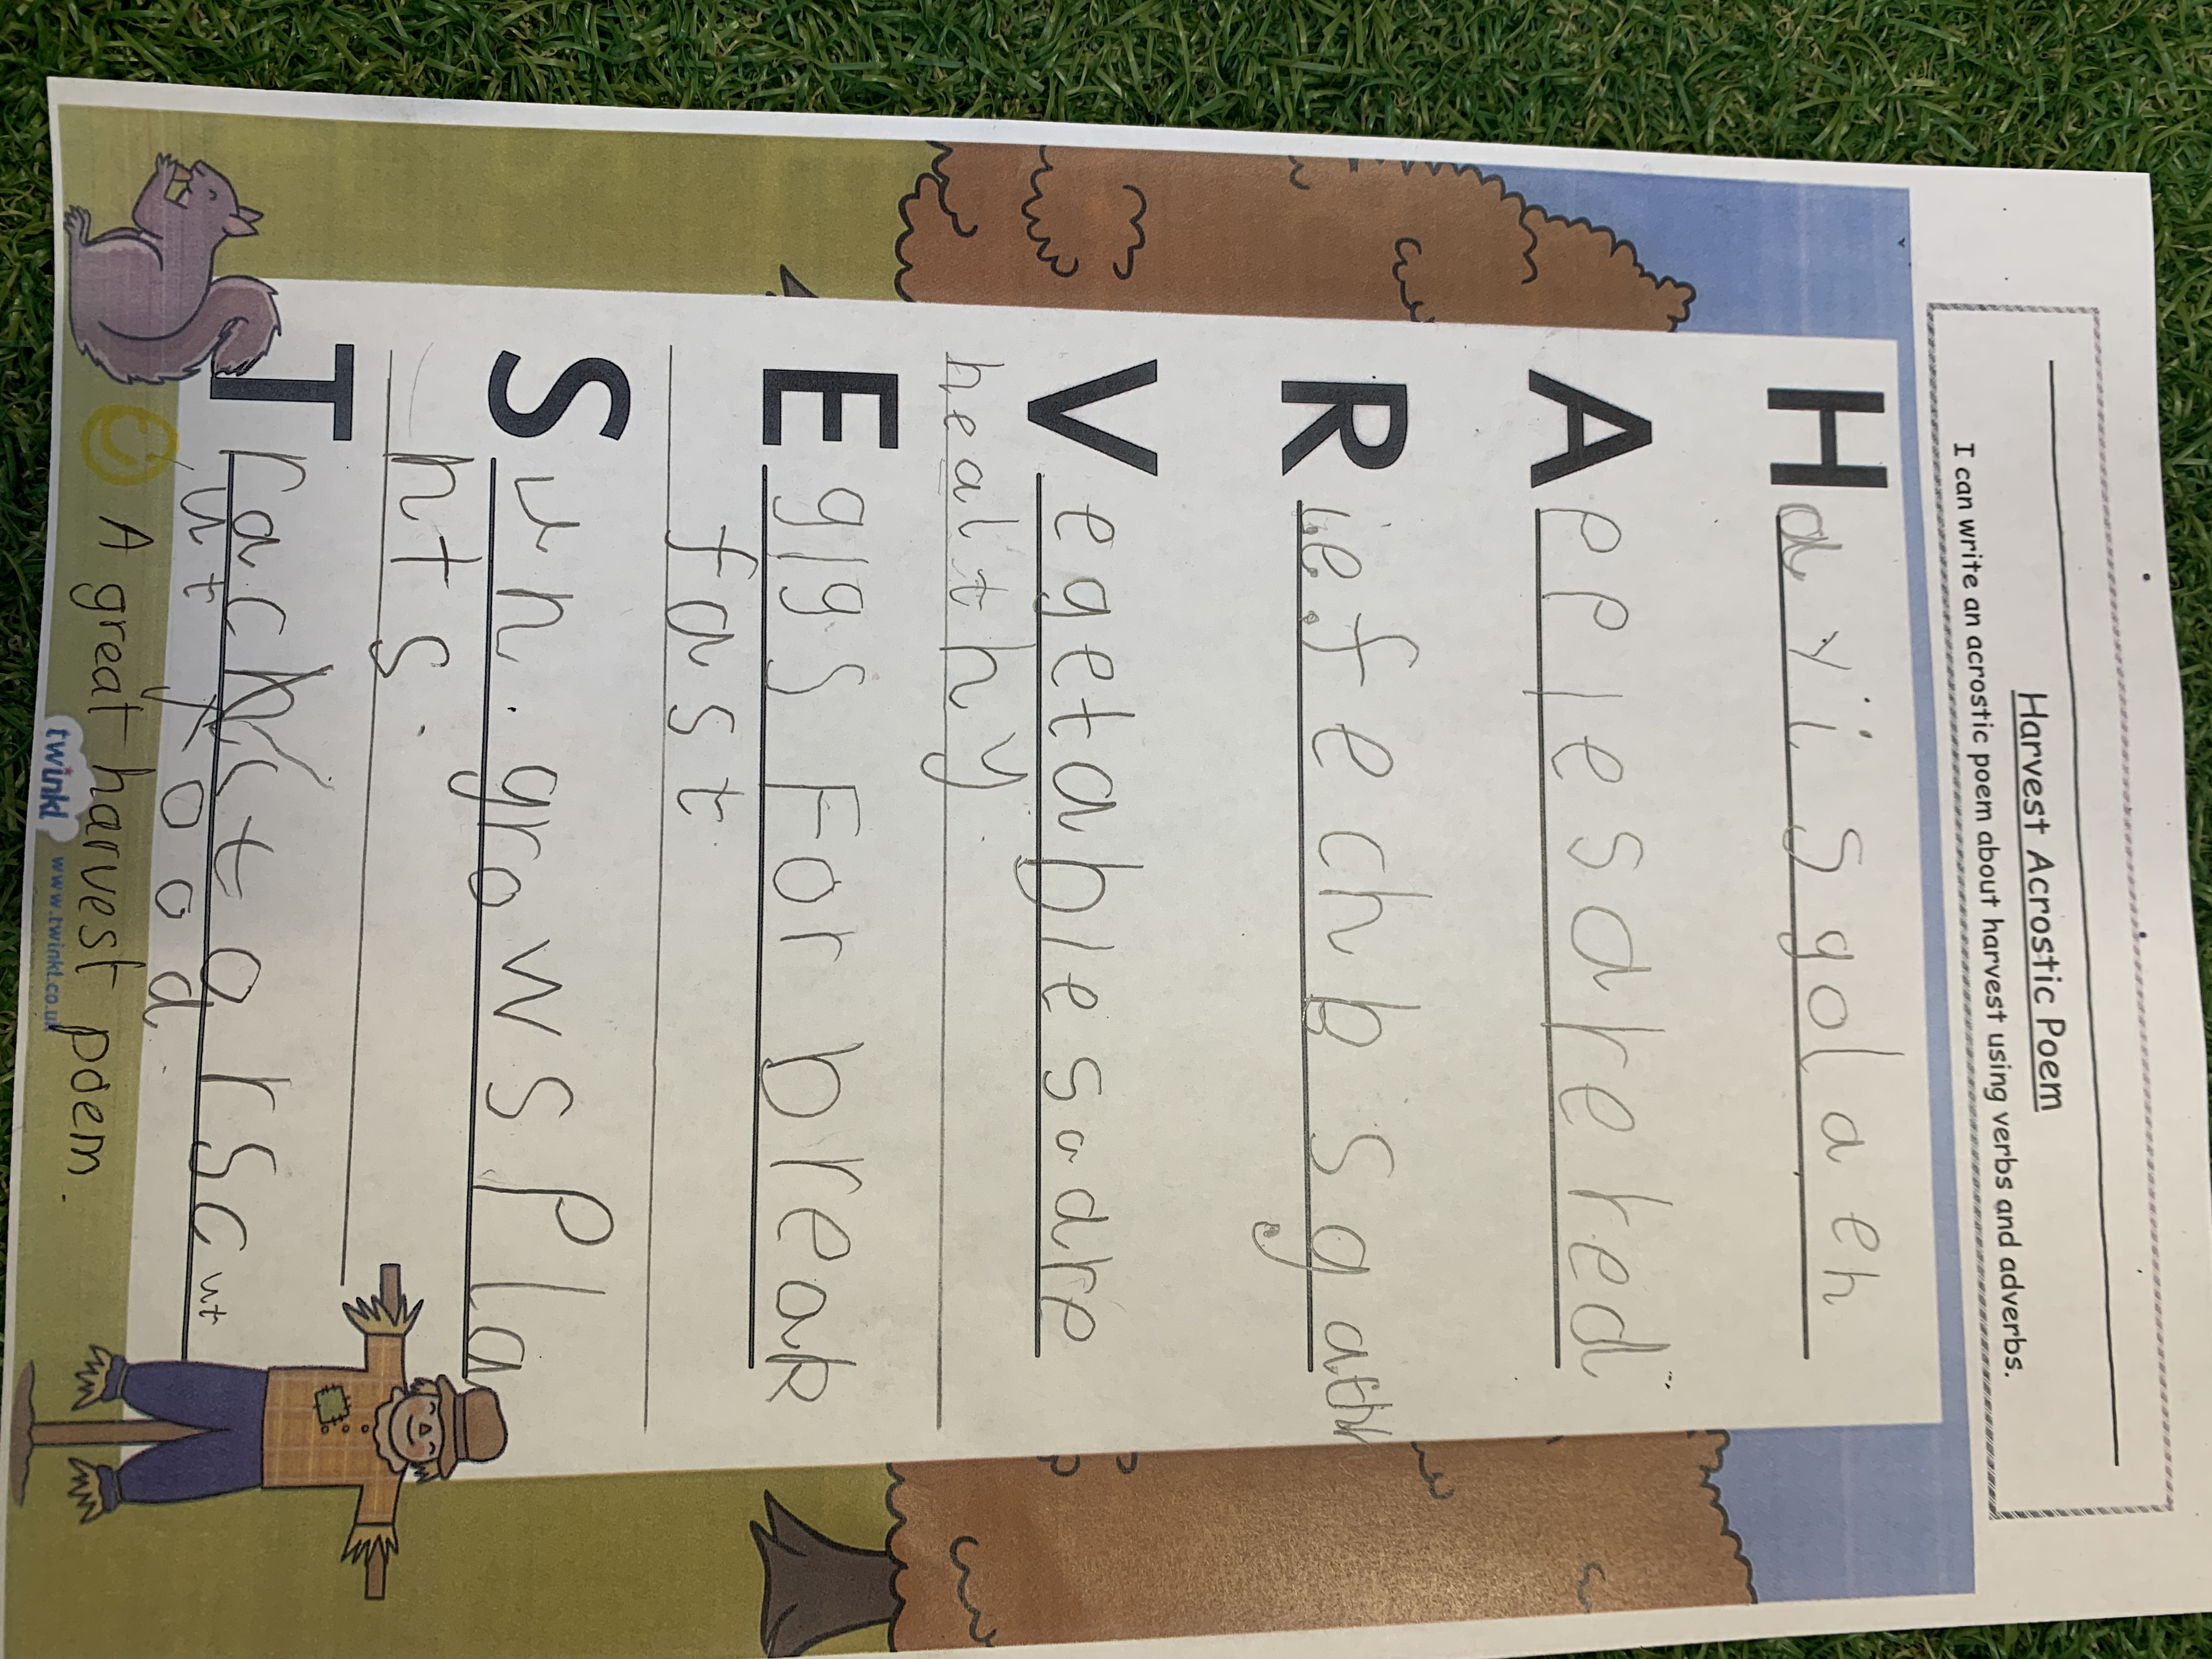 Harvest Acrostic Poem
I can write an acrostic poem about harvest using verbs and adverbs.
Hay is golaeh
Applesare red
Vegetables are
healthy.
Eggs For break
fast
Sun.grows Pla
nts.
to rs cut
food
A great harvest poem.
twinkl www.twinkl.co.uk